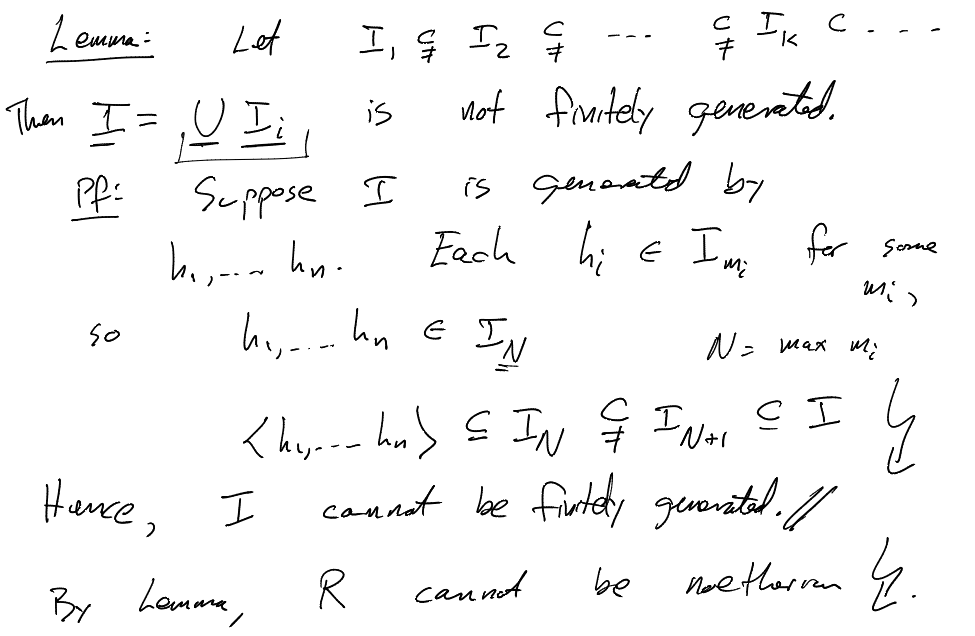 Lemma: Let I₁ ⊊ I₂ ⊊ --- ⊊ I_k ⊂ ----
Then I = ∪ I_i is not finitely generated.
Pf: Suppose I is generated by
h₁,---- h_n. Each h_i ∈ I_{m_i} for some
m_i,
so h₁,---- h_n ∈ I_N N = max m_i
<h₁,---- h_n> ⊆ I_N ⊊ I_{N+1} ⊆ I ↯
Hence, I cannot be finitely generated. //
By Lemma, R cannot be noetherian ↯.